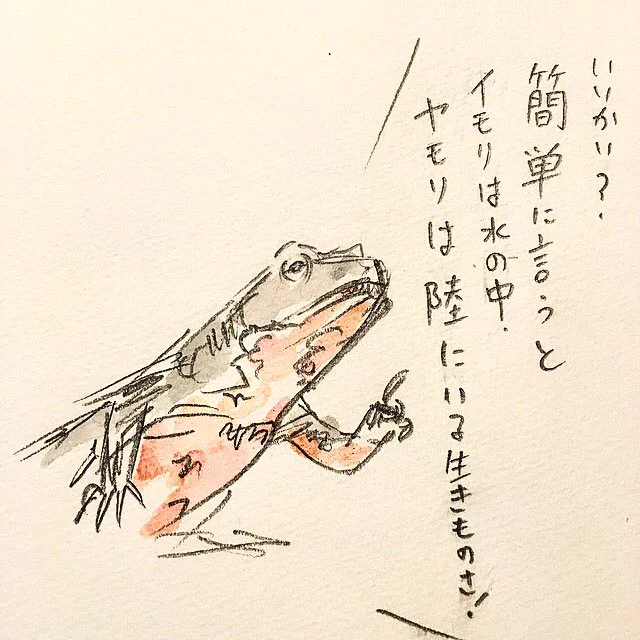 いいかい?.
簡単に言うと
イモリは水の中.
ヤモリは陸にいる生きものさ!